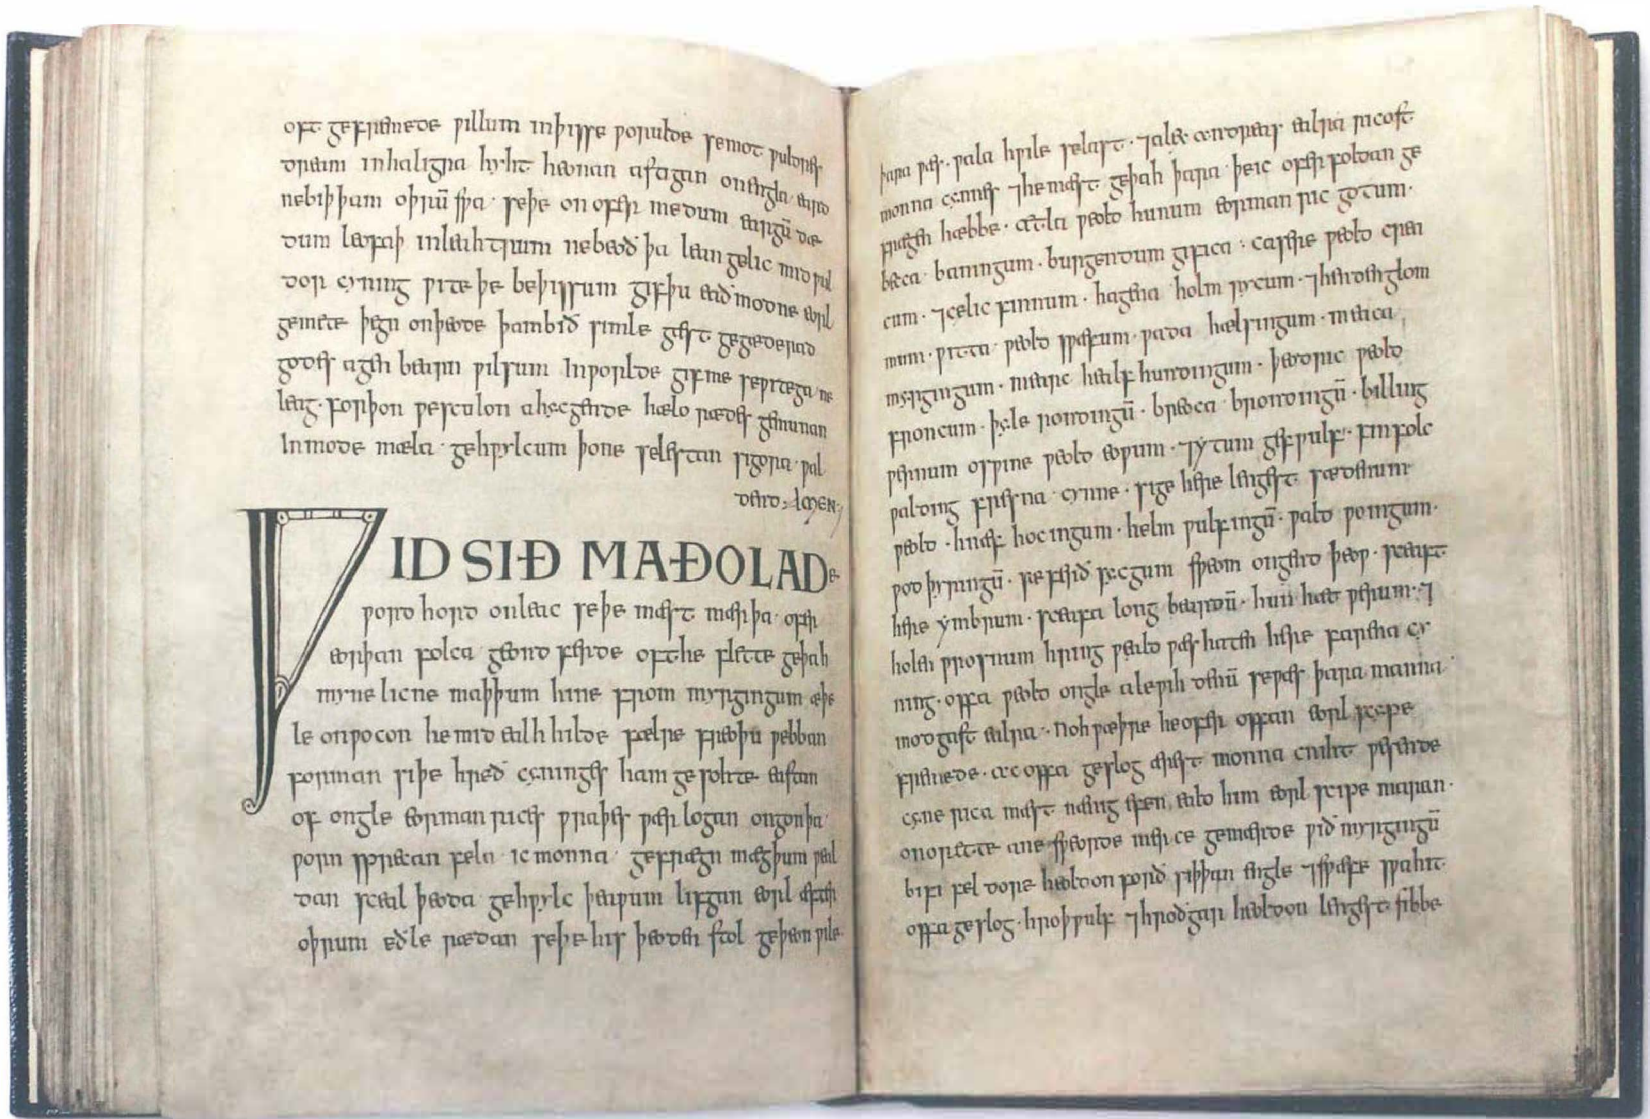 oft gefremede ƿillum inþisse ƿorulde semot ƿuldres
dream inhaligra hyht heonan astigan onengla eard
nebiþþam oþrū sƿa · seþe onofer medum eargū dæ
dum leofaþ inleahtrum nebeoð þa lean gelic mid ƿul
dor cyning ƿite þe beþissum gif þu eað modne eorl
gemete þegn onþeode þambið simle gæst gegæderad
godes agen bearn ƿilsum Inƿorlde gif me seƿitega ne
leag · forþon ƿesculon ahycgende hælo rædes gemunan
Inmode mæla gehƿylcum þone selestan sigora ƿal
dend : AMEN :
ǷIDSIÐ MAÐOLADE
ƿord hord onleac seþe mæst mærþa ofer
eorþan folca geond ferde ofthe flette geþah
mynelicne maþþum hine from myrgingum æþe
le onƿocon he mid ealhhilde fælre freoþu ƿebban
forman siþe hreð cyninges ham gesohte eastan
of ongle eormanrices ƿraþes ƿær logan ongonþa
ƿorn sprecan fela ic monna gefrægn mægþum ƿeal
dan sceal þeoda gehƿylc þeaƿum lifgan eorl æfter
oþrum eðle rædan seþe his þeoden stol geþeon ƿile
þara ƿæs · ƿala hƿile selast · ⁊alexandreas ealra ricost
monna cynnes ⁊hemæst geþah þara þeic ofer foldan ge
frægen hæbbe · ætla ƿeold hunum eormanric gotum ·
becca · baningum · burgendum gifica : casere ƿeold crea
cum · ⁊cęlic finnum · hagena holm rycum · ⁊henden glom
mum · ƿitta ƿeold sƿæfum · ƿada hælsingum · meaca
myrgingum · mearc healf hundingum · þeodric ƿeold
froncum · þyle rondingū · breoca brondingū · billing
ƿernum osƿine ƿeold eoƿum · ⁊ytum gefƿulf · finfolc
ƿalding fresna · cynne · sige here lengest sædenum
ƿeold · hnæf hocingum · helm ƿulfingū · ƿald ƿoingum ·
ƿod þyringū · sæferð sycgum sƿeom ongend þeoƿ · sceaft
here ymbrum · sceafa long beardū · hun hæt ƿerum · ⁊
holen ƿrosnum hring ƿeald ƿæs haten here farena cy
ning · offa ƿeold ongle aleƿih denū seƿæs þara manna
modgast ealra · noh ƿæþre heofer offan eorl scype
fremede · ac offa geslog ærest monna cniht ƿesende
cyne rica mæst nænig efen eald him eorl scipe maran ·
onorette ane sƿeorde merce gemærde ƿið myrgingū
bifi fel dore heoldon forð siþþan engle ⁊sƿæfe sƿahit
offa geslog · hroþƿulf ⁊hroðgar heoldon lengest sibbe